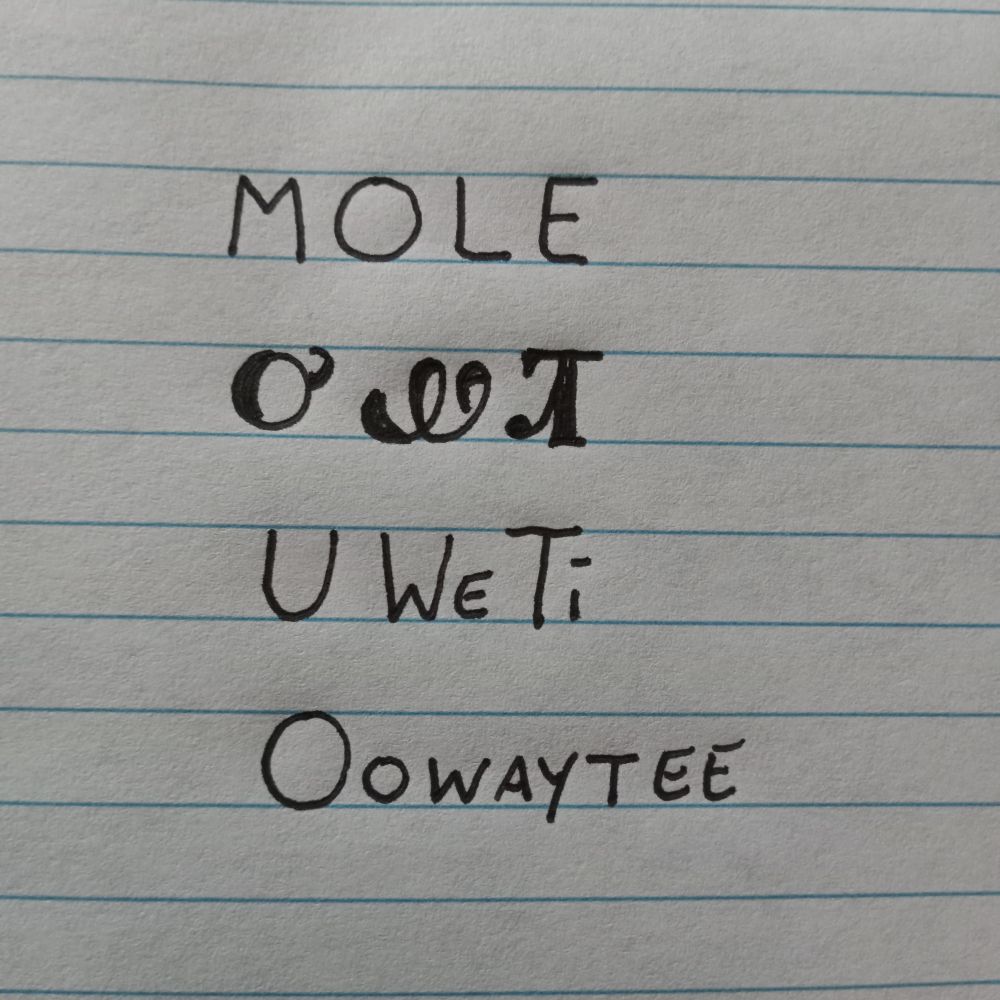 MOLE
ᎤᏪᏘ
U WeTi
OOWAYTEE